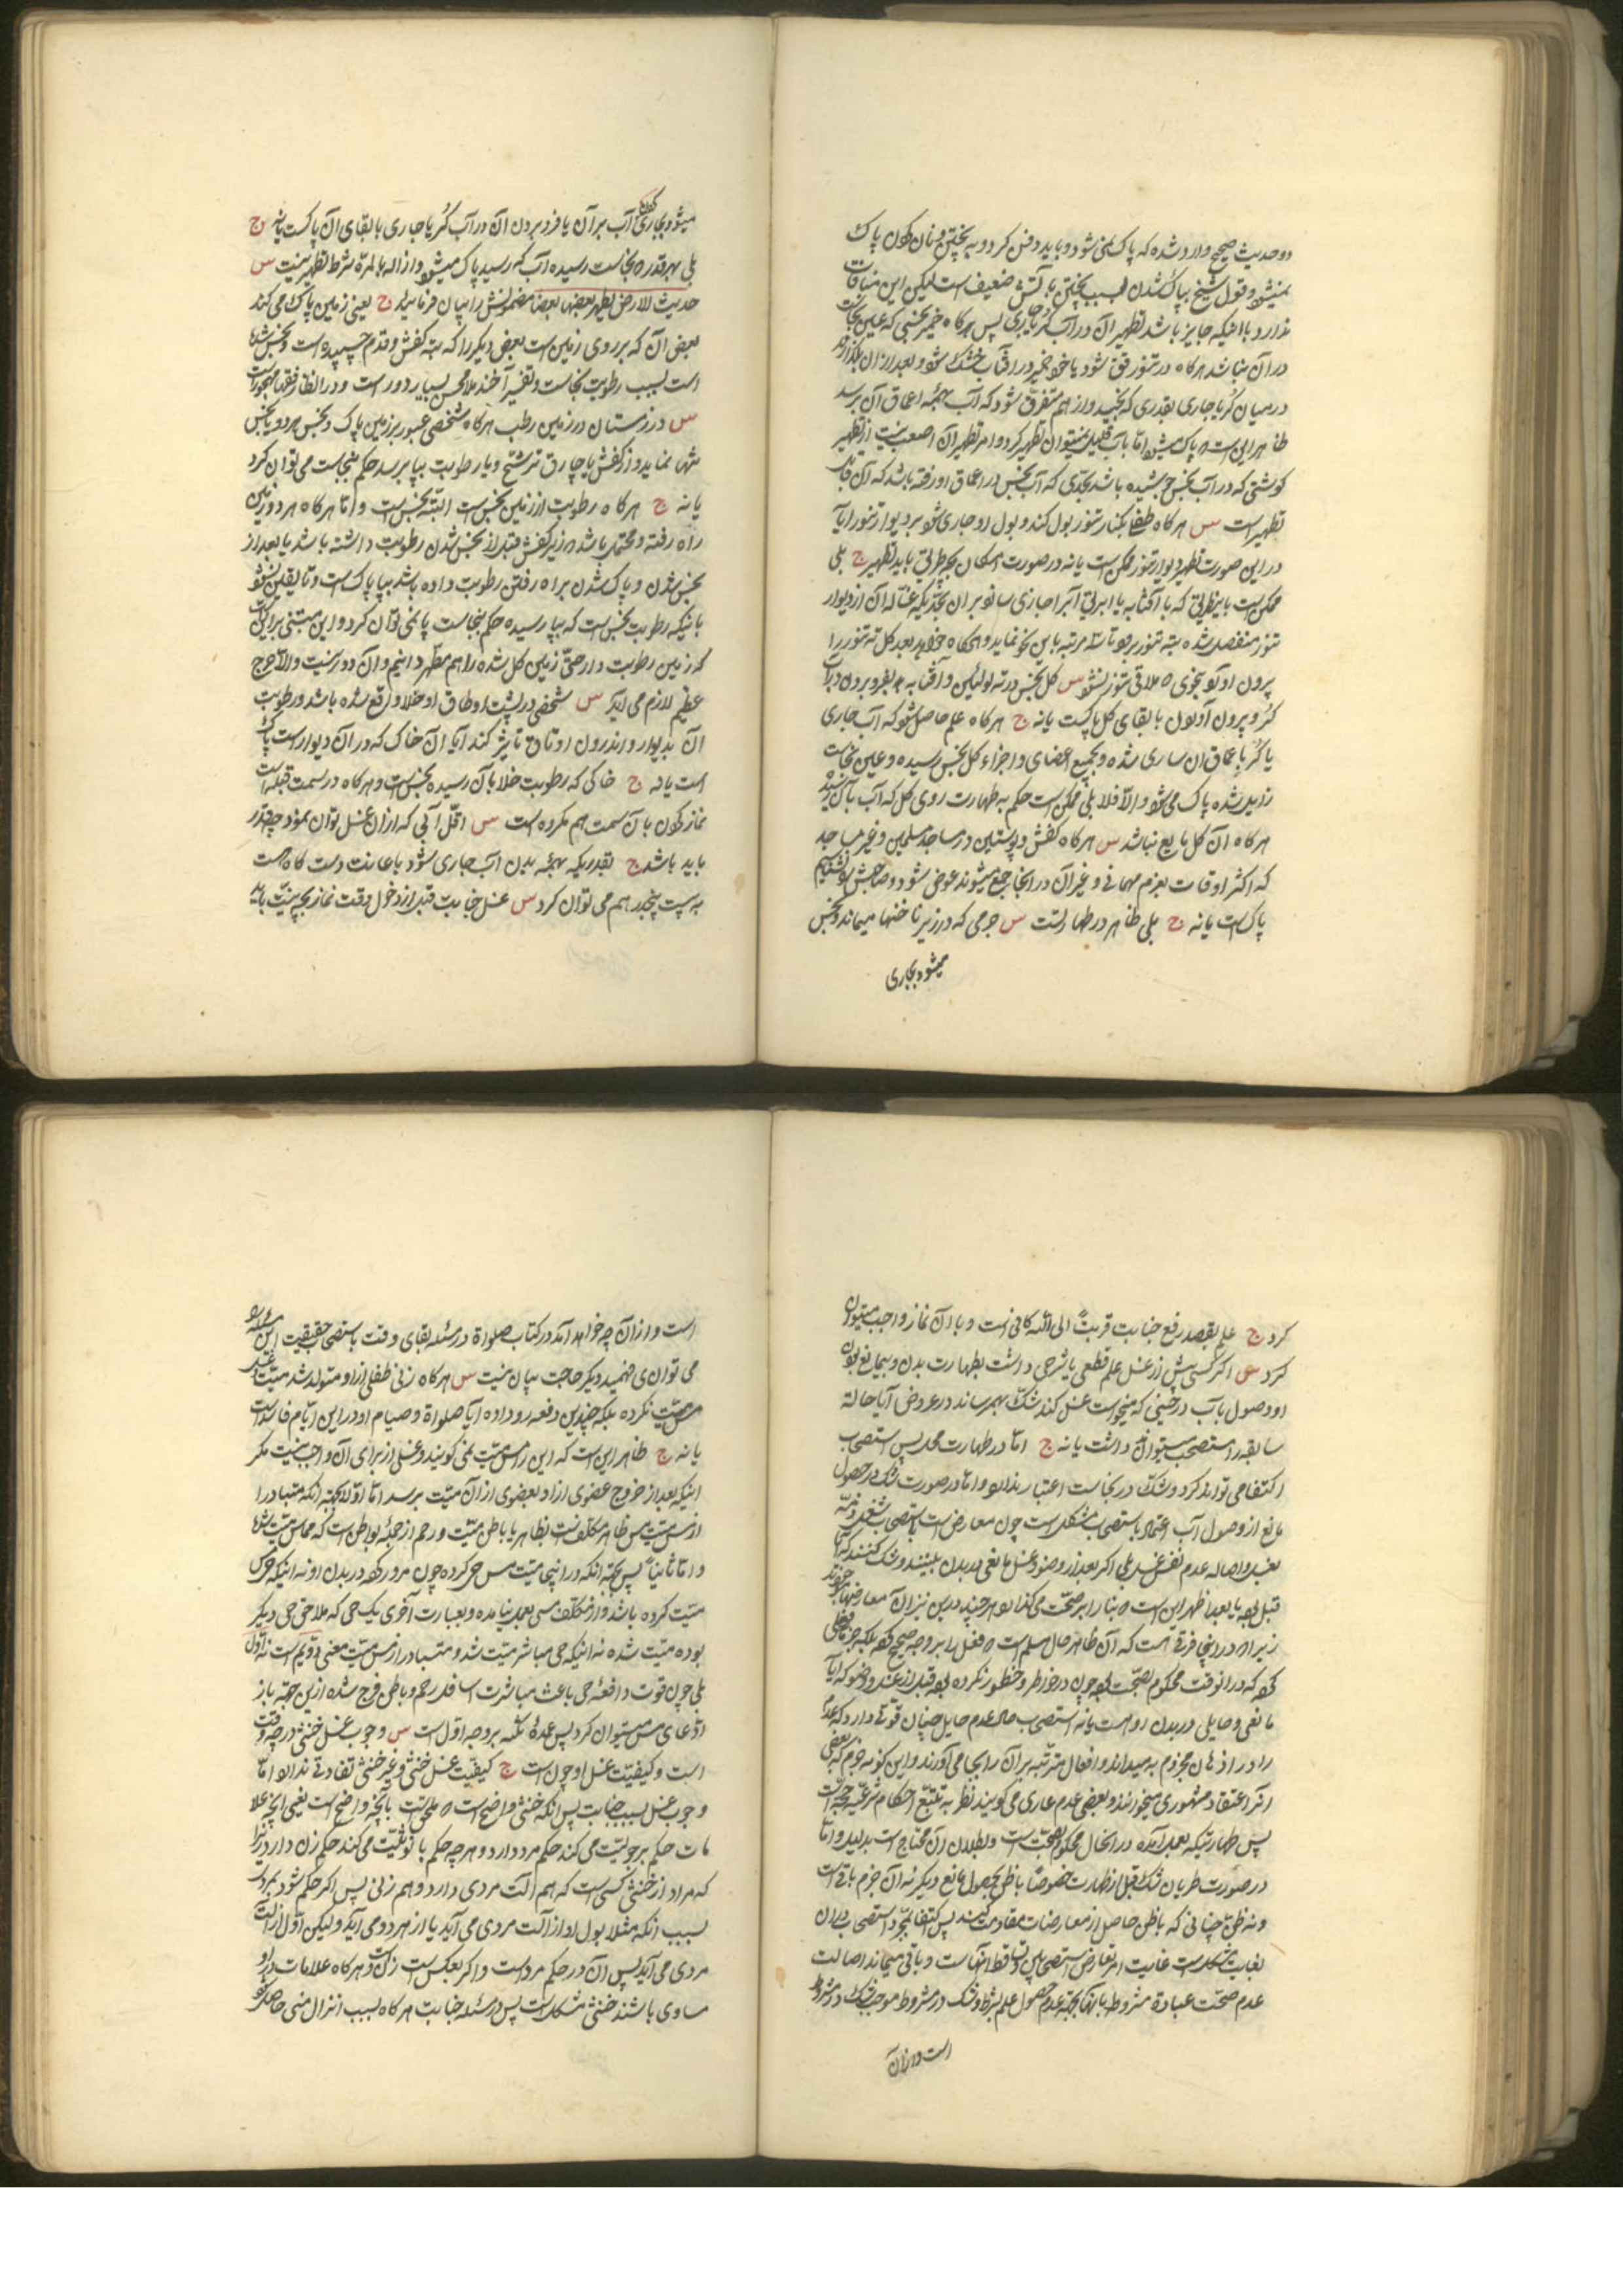 دو حدیث صحیح وارد شده که پاک نمی شود و باید دفن کرد و به پختن و نان کردن پاک
نمیشود و قول شیخ بپاک شدن بسبب پختن بآتش ضعیف است لیکن این منافات
ندارد با اینکه جایز باشد تطهیر آن در آب کر یا جاری پس هرگاه خمیر نجسی که عین نجاست
در آن نباشد هرگاه در تنور شود یا خود خمیر در آفتاب خشک شود و بعد از آن بگذارند
در میان کر یا جاری بقدری که بخیسد و از هم متفرق شود که آب بهمه اعماق آن برسد
ظاهر این است که پاک میشود اما بآب قلیل نمیتوان تطهیر کرد و امر تطهیر آن اصعب نیست از تطهیر
گوشتی که در آب نجس جوشیده باشد بحدی که آب نجس در اعماق او رفته باشد که آن قابل
تطهیر است س هرگاه طفلی بکنار تنور بول کند و بول او جاری شود بر دیوار تنور آیا
در این صورت تطهیر دیوار تنور ممکن است یا نه در صورت امکان بچه طریق باید تطهیر ج بلی
ممکن است باین طریق که با آفتابه یا ابریق آب را جاری سازند بر آن بحدیکه غساله آن از دیوار
تنور منفصل شده بته تنور برود تا سه مرتبه باین نحو نماید و هرگاه خواهد بعد گل ته تنور را
بیرون آورد بنحوی که ملاقی تنور نشود س گل نجس در ته لولئین و آفتابه که بفرو بردن در آب
کر و بیرون آوردن با بقای گل پاکست یا نه ج هرگاه علم حاصل شود که آب جاری
یا کر باعماق آن ساری شده و بجمیع اعضای و اجزاء گل نجس رسیده و عین نجاست
زایل شده پاک می شود و الا فلا بلی ممکن است حکم به طهارت روی گل که آب بآن رسیده
هرگاه آن گل مایع نباشد س هرگاه کفش و پوستین در مساجد مسلمین و غیر مساجد
که اکثر اوقات بعزم مهمانی و غیر آن در آنجا جمع میشوند عوض شود و صاحبش را نشناسیم
پاک است یا نه ج بلی ظاهر در طهارتست س جرمی که در زیر ناخنها میماند و نجس
میشود بجاری
میشود بجاری کردن آب بر آن یا فرو بردن آن در آب کر یا جاری با بقای آن پاکست یا نه ج
بلی بهر قدر که نجاست رسیده آب که رسید پاک میشود و ازاله بالمره شرط تطهیر نیست س
حدیث الارض یطهر بعضها بعضا مضمونش را بیان فرمایید ج یعنی زمین پاک می کند
بعض آن که بر روی زمین است بعض دیگر را که بته کفش و قدم چسبیده است و نجس شده
است بسبب رطوبت نجاست و تفسیر آخند ملا محسن بسیار دور است و در انظار فقها مهجور است
س در زمستان در زمین رطب هرگاه شخصی عبور بر زمین پاک و نجس هر دو یا نجس
تنها نماید و از کفش یا چارق ترشح و یا رطوبت بپا برسد حکم بنجاست می توان کرد
یا نه ج هرگاه رطوبت از زمین نجس است البته نجس است و اما هرگاه هر دو زمین
راه رفته و محتمل باشد که زیر کفش قبل از نجس شدن رطوبت داشته باشد یا بعد از
نجس شدن و پاک شدن براه رفتن رطوبت داده باشد بپا پاک است و تا یقین نشود
باینکه رطوبت نجس است که بپا رسیده حکم بنجاست پا نمی توان کرد و این مبتنی بر این است
که زمین رطوبت دار حتی زمین گل شده را هم مطهر دانیم و آن دور نیست و الا حرج
عظیم لازم می آید س شخصی در پشت اوطاق او خلا واقع شده باشد و رطوبت
آن بدیوار و اندرون اوتاق تاثیر کند آیا آن خاک که در آن دیوار است پاک
است یا نه ج خاکی که رطوبت خلا بآن رسیده نجس است و هرگاه در سمت قبله است
نماز کردن بآن سمت هم مکروه است س اقل آبی که از آن غسل توان نمود چقدر
باید باشد ج بقدریکه بهمه بدن آب جاری شود باعانت دست گاه هست
به بیست پنجدرهم می توان کرد س غسل جنابت قبل از دخول وقت نماز بچه نیت باید
کرد ج علم بقصد رفع جنابت قربة الی الله کافی است و با آن نماز واجب میتوان
کرد س اگر کسی پیش از غسل علم قطعی یا شرعی داشت بطهارت بدن و بیمانع بودن
او و وصول بآب در حینی که میخواست غسل کند شک بهمرساند در عروض آیا حالة
سابقه را مستصحب میتوان داشت یا نه ج اما در طهارت محل پس استصحاب
اکتفا می توان کرد و شک در نجاست اعتبار ندارد و اما در صورت شک در حصول
مانع از وصول آب اعتماد باستصحاب مشکل است چون معارض است باستصحاب شغل ذمه
بغسل و اصاله عدم نفس غسل بلی اگر بعد از وضو و غسل مانعی در بدن ببینند و شک کنند که آیا
قبل بوده یا بعد اظهر این است که بنا را بر صحت می گذارد هر چند درین نیز آن معارضها هستند
زیرا که در اینجا فرقی هست که آن ظاهر حال مسلم است که فعل را بر وجه صحیح کرده بلکه
کرده که در آنوقت محکوم بصحت بوده چون در خاطر او خطور نکرده بوده قبل از غسل و وضو که آیا
مانعی و حایلی در بدن او هست یا نه استصحاب حال عدم حایل چنان قوتی دارد که عدم
را در اذهان مجزوم به میداند و افعال مترتبه بر آن را بجا می آورند و این گونه جزم که بعضی
آنرا اعتقاد مشهوری میخوانند و بعضی عدم عاری می گویند نظر به تتبع احکام شرعیه حجة است
پس طهارتیکه بعمل آمده در آنحال محکوم بصحت است و بطلان آن محتاج است بدلیل و اما
در صورت طریان شک قبل از طهارت خصوصا با ظن بحصول مانع دیگر نه آن جزم باقی است
و نه ظنی چنانی که با ظن حاصل از معارضات مقاومت کند پس اکتفا بمجرد استصحاب در آن
بغایت مشکل است غایت امر تعارض استصحابین و تساقط آنهاست و باقی میماند اصالت
عدم صحت عبادة مشروط بآنها بجهة عدم حصول علم بشرط و شک در شرط موجب شک در مشروط
است و از آن
است و از آن چه خواهد آمد در کتاب صلواة در مسئله بقای وقت باستصحاب حقیقت این مسئله را
می توان فهمید دیگر حاجت بیان نیست س هرگاه زنی طفلی از او متولد شد میت
مس میت نکرده بلکه چندین دفعه رو داده آیا صلواة و صیام او در این ایام فاسد است
یا نه ج ظاهر این است که این را مس میت نمی گویند و غسلی از برای آن واجب نیست مگر
اینکه بعد از خروج عضوی از او بعضوی از آن میت برسد اما اولا بجهة آنکه متبادر
از مس میت مس ظاهر مکلف است بظاهر یا باطن میت و رحم از جمله بواطن است که مماس میت شده
و اما ثانیا پس بجهة آنکه در اینجا میت مس حی کرده چون مرور کرده در بدن او نه اینکه حی مس
میت کرده باشد و از مکلف مسی بعمل نیامده و بعبارت اخری یک حی که ملاقی حی دیگر
بوده میت شده نه اینکه حی مباشر میت شد و متبادر از مس میت معنی دویم است نه اول
بلی چون قوت دافعه حی باعث مباشرت اسافل رحم و باطن فرج شده ازین جهة باز
ادعای مس میتوان کرد پس عمدة تکیه بر وجه اول است س وجوب غسل خنثی در چه وقت
است و کیفیت غسل او چون است ج کیفیت غسل خنثی و غیر خنثی تفاوتی ندارد و اما
وجوب غسل بسبب جنابت پس آنکه خنثی واضح است که ملحق است بآنچه واضح است یعنی آنچه علا
مات حکم برجولیت می کند حکم مرد دارد و هر چه حکم بانوثیت می کند حکم زن دارد زیرا
که مراد از خنثی کسی است که هم آلت مردی دارد و هم زنی پس اگر حکم شود بمرد
بسبب آنکه مثلا بول او از آلت مردی می آید یا از هر دو می آید ولیکن اول از آلت
مردی می آید پس آن در حکم مرد است و اگر بعکس است زن و هرگاه علامات در او
مساوی باشند خنثی مشکل است پس در مسئله جنابت هرگاه بسبب انزال منی حاصل شود